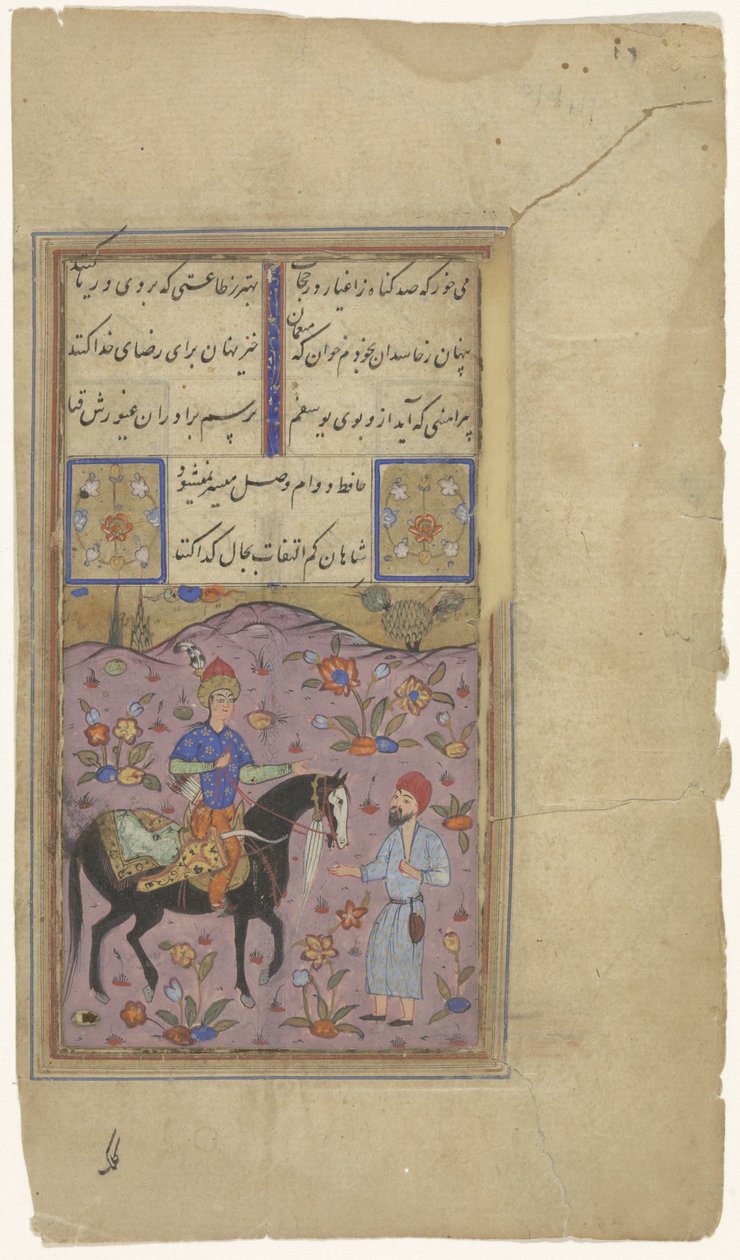 می خور که صد کناه ز اغیار در حجاب بهتر ز طاعتی که بروی و ریا کنند
پنهان ز حاسدان بخودم خوان که منعمان خیر نهان برای رضای خدا کنند
پیراهنی که آید ازو بوی یوسفم ترسم برادران غیورش قبا کنند
حافظ دوام وصل میسر نمیشود
شاهان کم التفات بحال کدا کنند
کلک